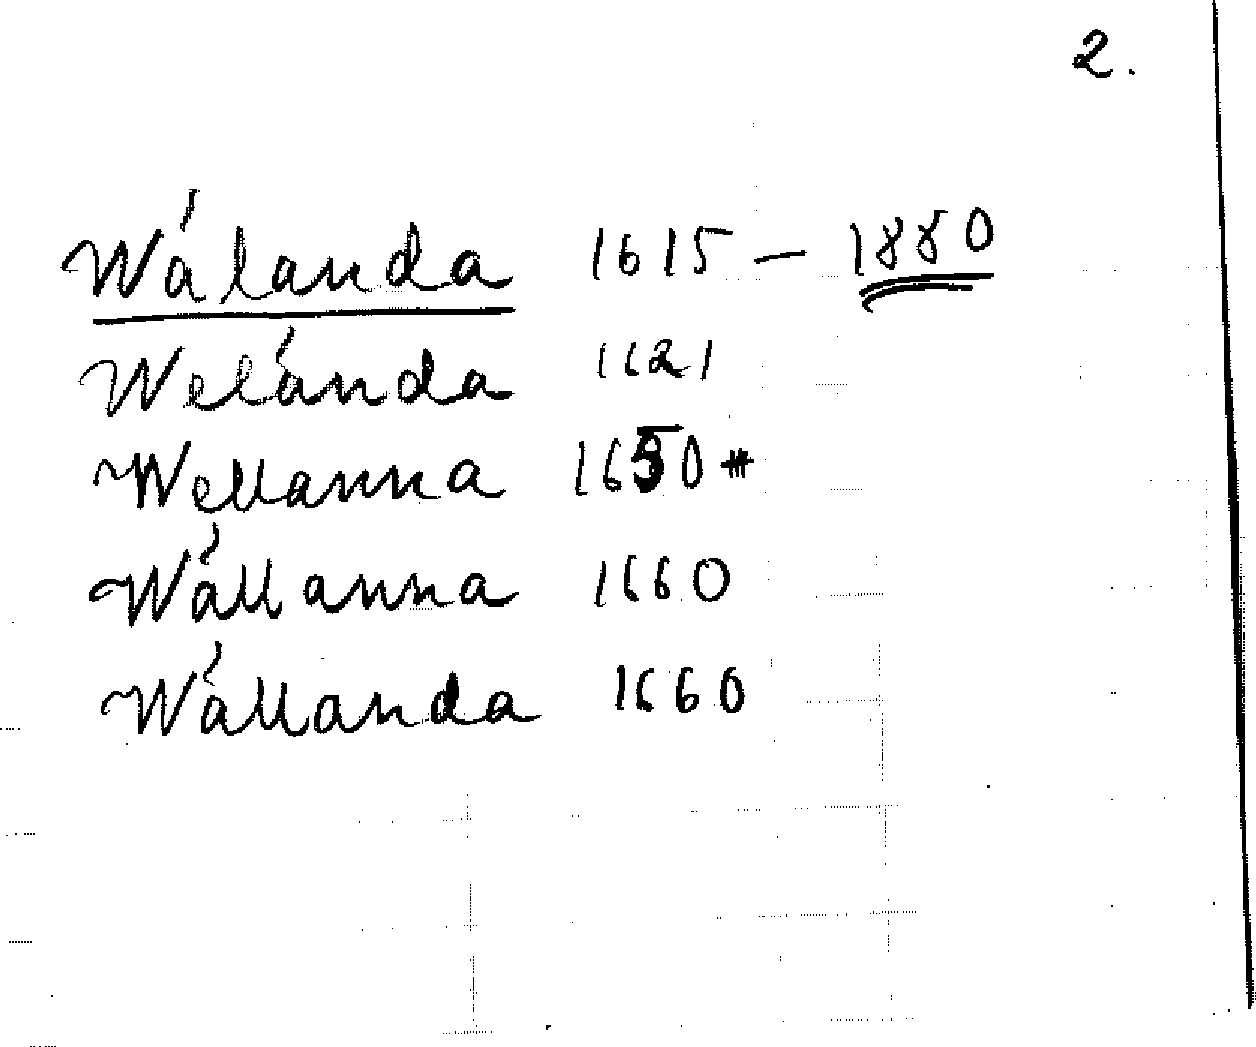 2.
Wálanda 1615 – 1880
Welánda 1621
Wellanna 1650 #
Wállanna 1660
Wállanda 1660